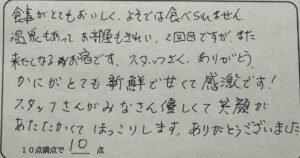 食事がとてもおいしく、よそでは食べられません。
温泉もあって お部屋もきれい、2回目ですが、また
来たくなるお宿です、スタッフさん、ありがとう。
かにがとても新鮮で甘くて感激です！
スタッフさんがみなさん優しくて笑顔が
あたたかくてほっこりします。ありがとうございました
10点満点で 10 点